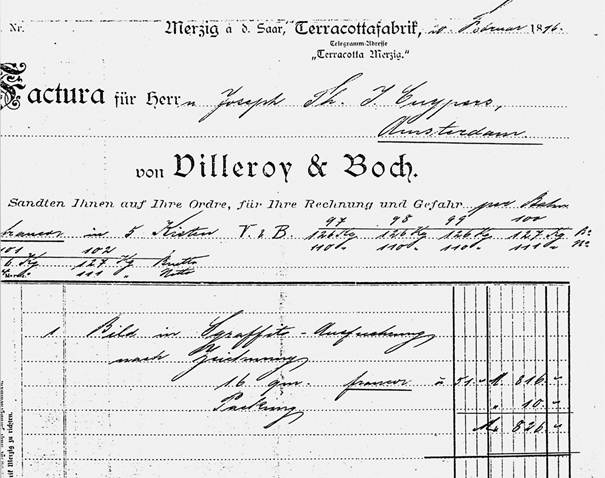 Nr.
Merzig a d. Saar, Terracottafabrik, 20 Februar 1896.
Telegramm-Adresse
„Terracotta Merzig.“
Factura für Herrn Joseph Th. J. Cuypers,
Amsterdam.
von Villeroy & Boch.
Sandten Ihnen auf Ihre Ordre, für Ihre Rechnung und Gefahr per Bahn
franco in 5 Kisten V. & B. 97 98 99 100
126 Kg 126 Kg 126 Kg 127 Kg B.
110 " 110 " 110 " 111 " N.
101 102
6. Kg 127 Kg Brutto
111 " Netto
1 Bild in Sgraffito-Ausführung
nach Zeichnung
16 qm. franco à 51.- M. 816.-
Packung " 10.-
M. 826.-